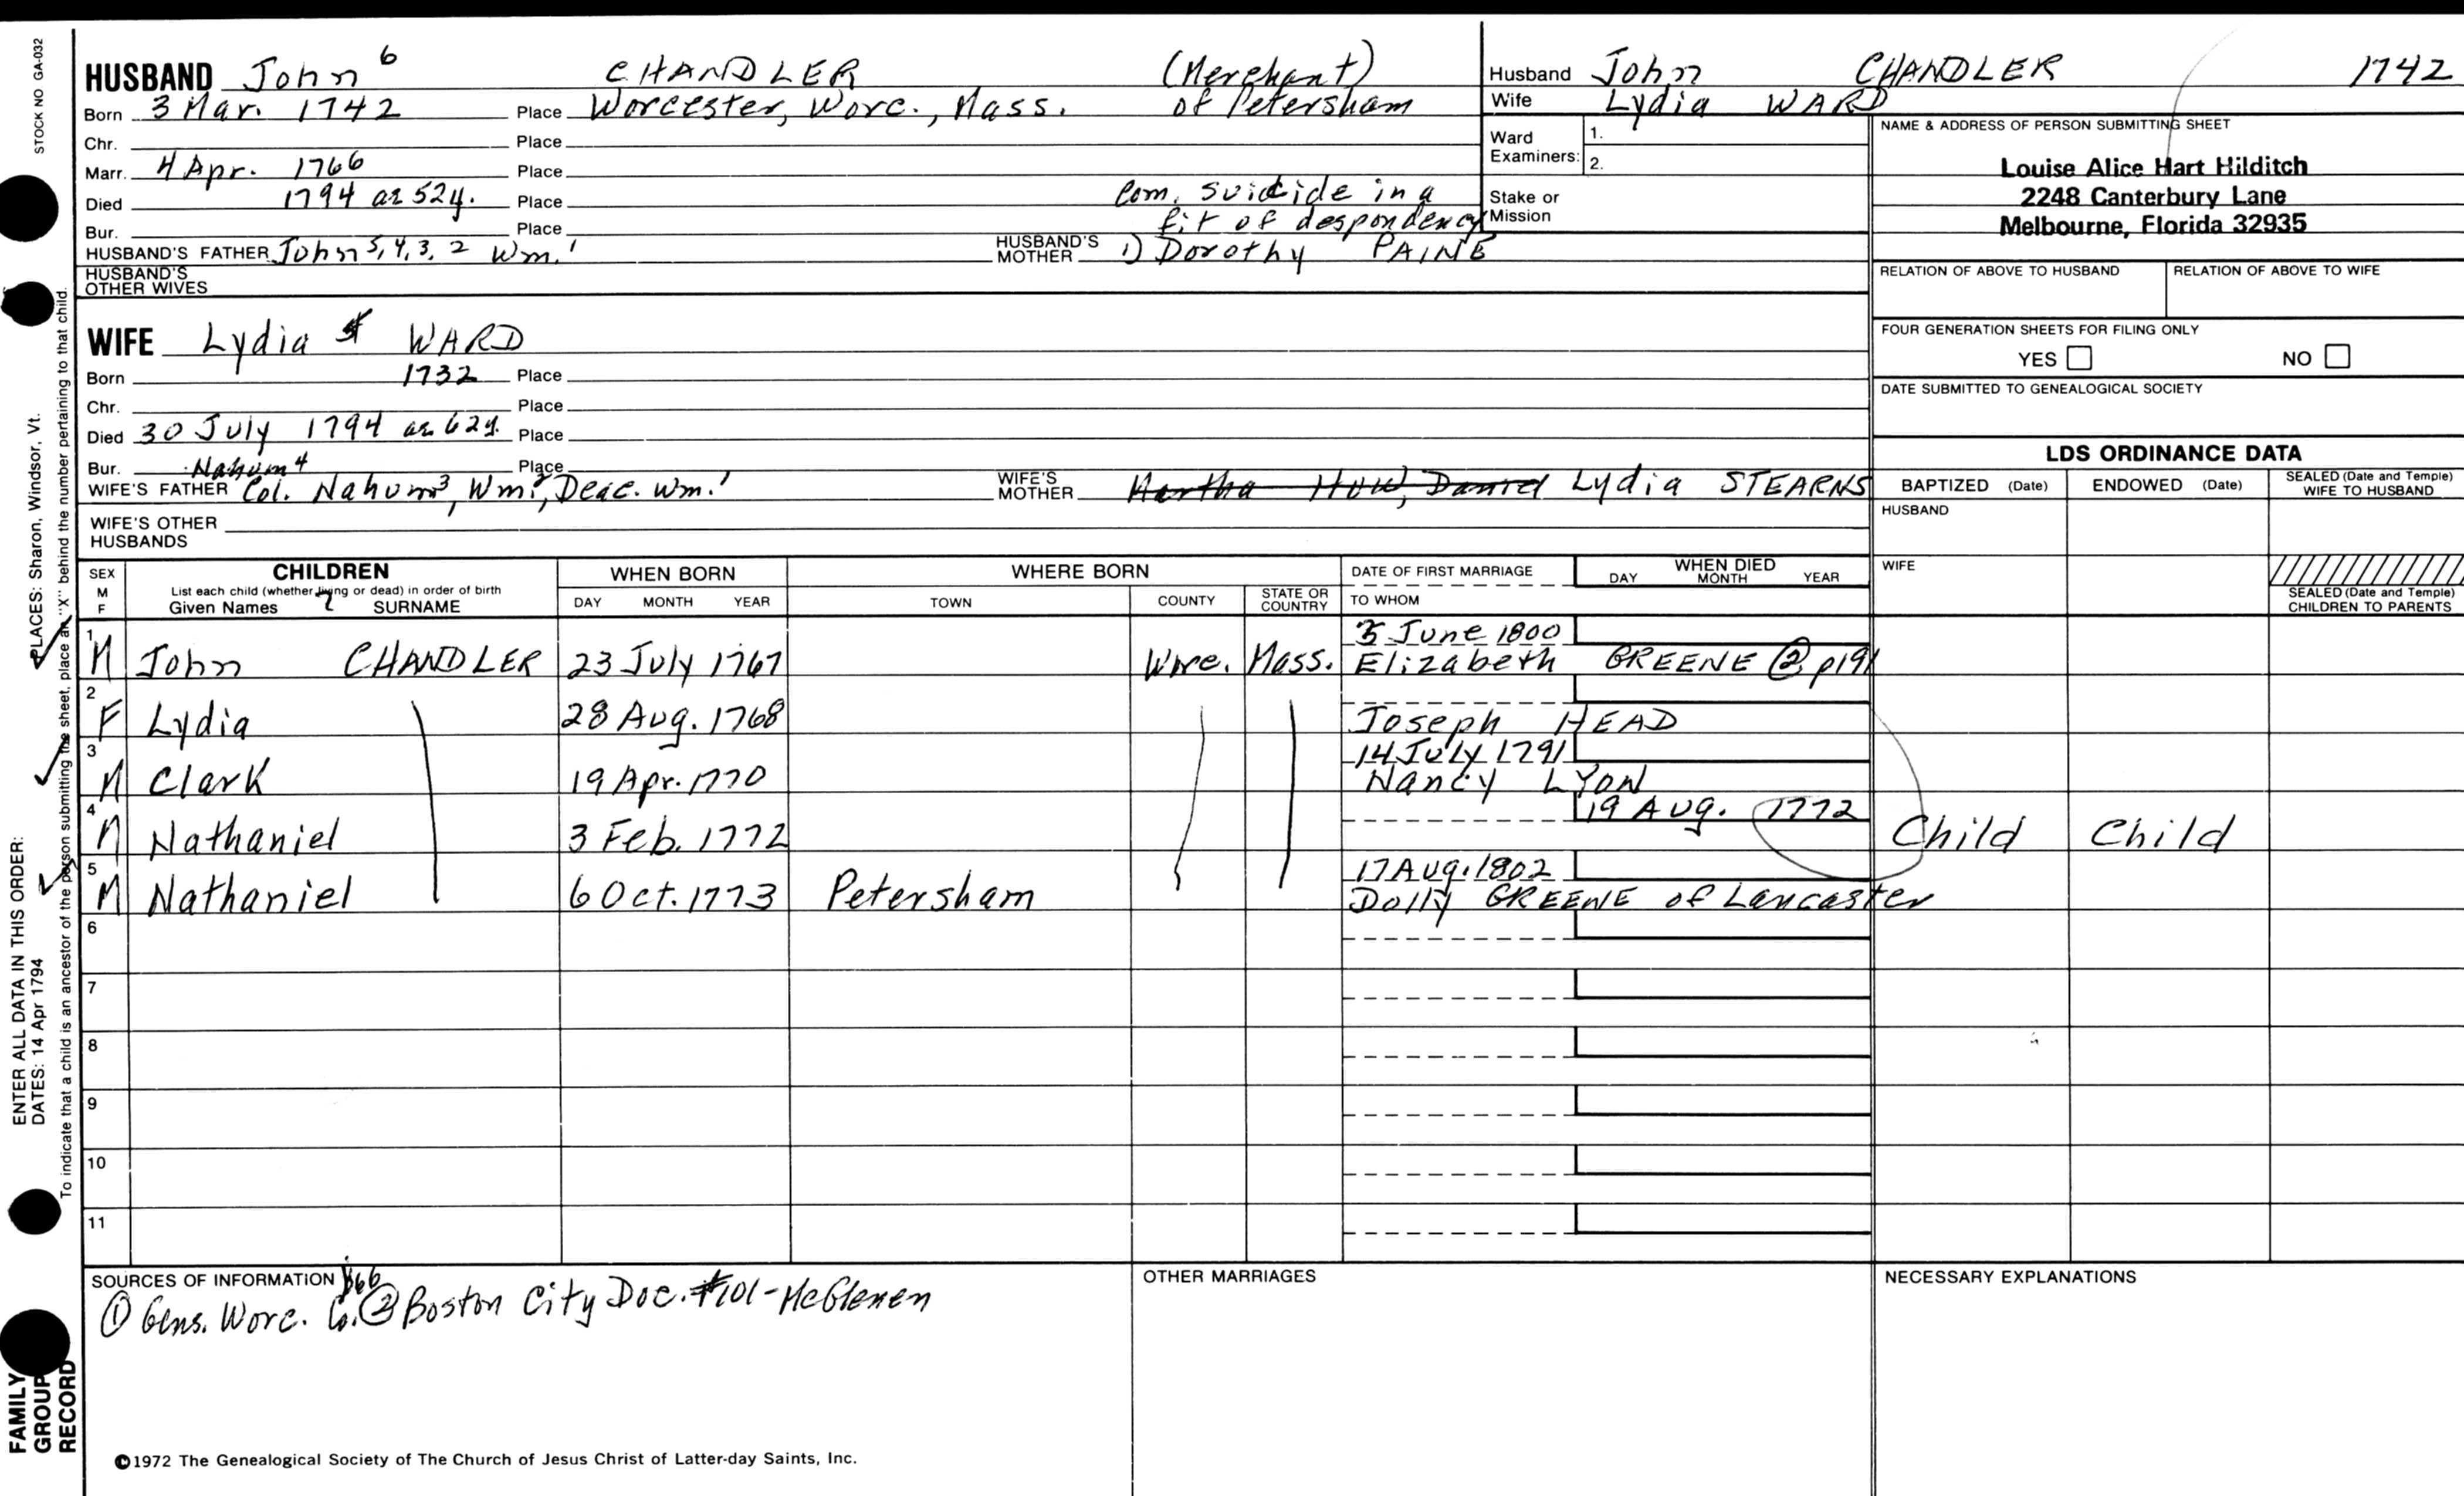 STOCK NO GA-032
HUSBAND John 6 CHANDLER (Merchant)
Born 3 Mar. 1742 Place Worcester, Worc., Mass. of Petersham
Chr. Place
Marr. 4 Apr. 1766 Place
Died 1794 ae 52y. Place Com. suicide in a
Bur. Place fit of despondency
HUSBAND'S FATHER John 5, 4, 3, 2 Wm. 1 HUSBAND'S MOTHER 1) Dorothy PAINE
HUSBAND'S OTHER WIVES
WIFE Lydia WARD
Born 1732 Place
Chr. Place
Died 30 July 1794 ae 62y. Place
Bur. Nahum 4 Place
WIFE'S FATHER Col. Nahum 3, Wm. 2, Deac. Wm. 1 WIFE'S MOTHER Martha How, Daniel Lydia STEARNS
WIFE'S OTHER HUSBANDS
Husband John CHANDLER 1742
Wife Lydia WARD
Ward Examiners: 1.
2.
Stake or Mission
NAME & ADDRESS OF PERSON SUBMITTING SHEET
Louise Alice Hart Hilditch
2248 Canterbury Lane
Melbourne, Florida 32935
RELATION OF ABOVE TO HUSBAND RELATION OF ABOVE TO WIFE
FOUR GENERATION SHEETS FOR FILING ONLY
YES NO
DATE SUBMITTED TO GENEALOGICAL SOCIETY
LDS ORDINANCE DATA
BAPTIZED (Date) ENDOWED (Date) SEALED (Date and Temple) WIFE TO HUSBAND
HUSBAND
WIFE
SEALED (Date and Temple) CHILDREN TO PARENTS
SEX M F CHILDREN WHEN BORN WHERE BORN DATE OF FIRST MARRIAGE WHEN DIED
List each child (whether living or dead) in order of birth DAY MONTH YEAR
Given Names 7 SURNAME DAY MONTH YEAR TOWN COUNTY STATE OR COUNTRY TO WHOM
3 June 1800
1 M John CHANDLER 23 July 1767 Worc. Mass. Elizabeth GREENE ② p191
2 F Lydia 28 Aug. 1768 Joseph HEAD
14 July 1791
3 M Clark 19 Apr. 1770 Nancy LYON
19 Aug. 1772
4 M Nathaniel 3 Feb. 1772 Child Child
17 Aug. 1802
5 M Nathaniel 6 Oct. 1773 Petersham Dolly GREENE of Lancaster
6
7
8
9
10
11
SOURCES OF INFORMATION OTHER MARRIAGES NECESSARY EXPLANATIONS
① Gens. Worc. Co. ② Boston City Doc. #101-McGlenen
©1972 The Genealogical Society of The Church of Jesus Christ of Latter-day Saints, Inc.
FAMILY GROUP RECORD
ENTER ALL DATA IN THIS ORDER:
DATES: 14 Apr 1794 PLACES: Sharon, Windsor, Vt.
To indicate that a child is an ancestor of the person submitting the sheet, place an "X" behind the number pertaining to that child.